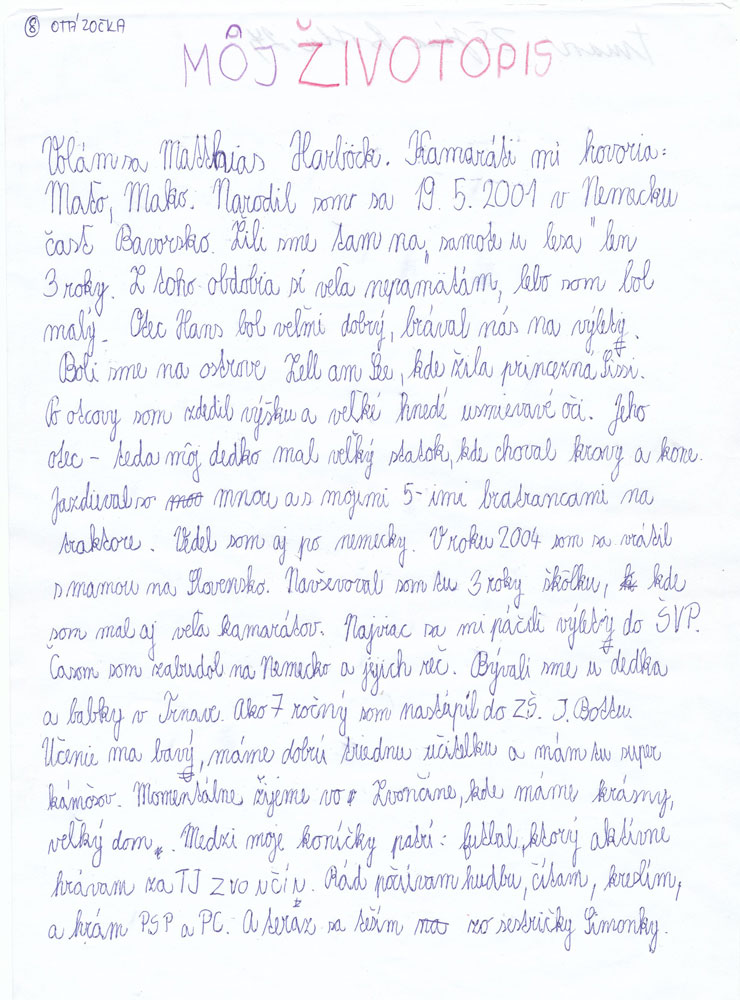 8 OTÁZOČKA
MÔJ ŽIVOTOPIS
Volám sa Matthias Harlböck. Kamaráti mi hovoria:
Maťo, Mako. Narodil som sa 19. 5. 2001 v Nemecku
časť Bavorsko. Žili sme tam na „samote u lesa" len
3 roky. Z toho obdobia si veľa nepamätám, lebo som bol
malý. Otec Hans bol veľmi dobrý, brával nás na výlety.
Boli sme na ostrove Zell am See, kde žila princezná Sissi.
Po otcovy som zdedil výšku a veľké hnedé usmievavé oči. Jeho
otec - teda môj dedko mal veľký statok, kde choval kravy a kone.
Jazdieval so mnou a s mojimi 5-imi bratrancami na
traktore. Vedel som aj po nemecky. V roku 2004 som sa vrátil
s mamou na Slovensko. Navševoval som tu 3 roky škôlku, kde
som mal aj veľa kamarátov. Najviac sa mi páčili výlety do ŠVP.
Časom som zabudol na Nemecko a jejich reč. Bývali sme u dedka
a babky v Trnave. Ako 7 ročný som nastúpil do ZŠ. J. Bottu.
Učenie ma baví, máme dobrú triednu učitelku a mám tu super
kámošov. Momentálne žijeme vo Zvončíne, kde máme krásny,
veľký dom. Medzi moje koníčky patrí: futbal, ktorý aktívne
hrávam za TJ ZVONČÍN. Rád počúvam hudbu, čítam, kreslím,
a hrám PSP a PC. A teráz sa teším zo sestričky Simonky.